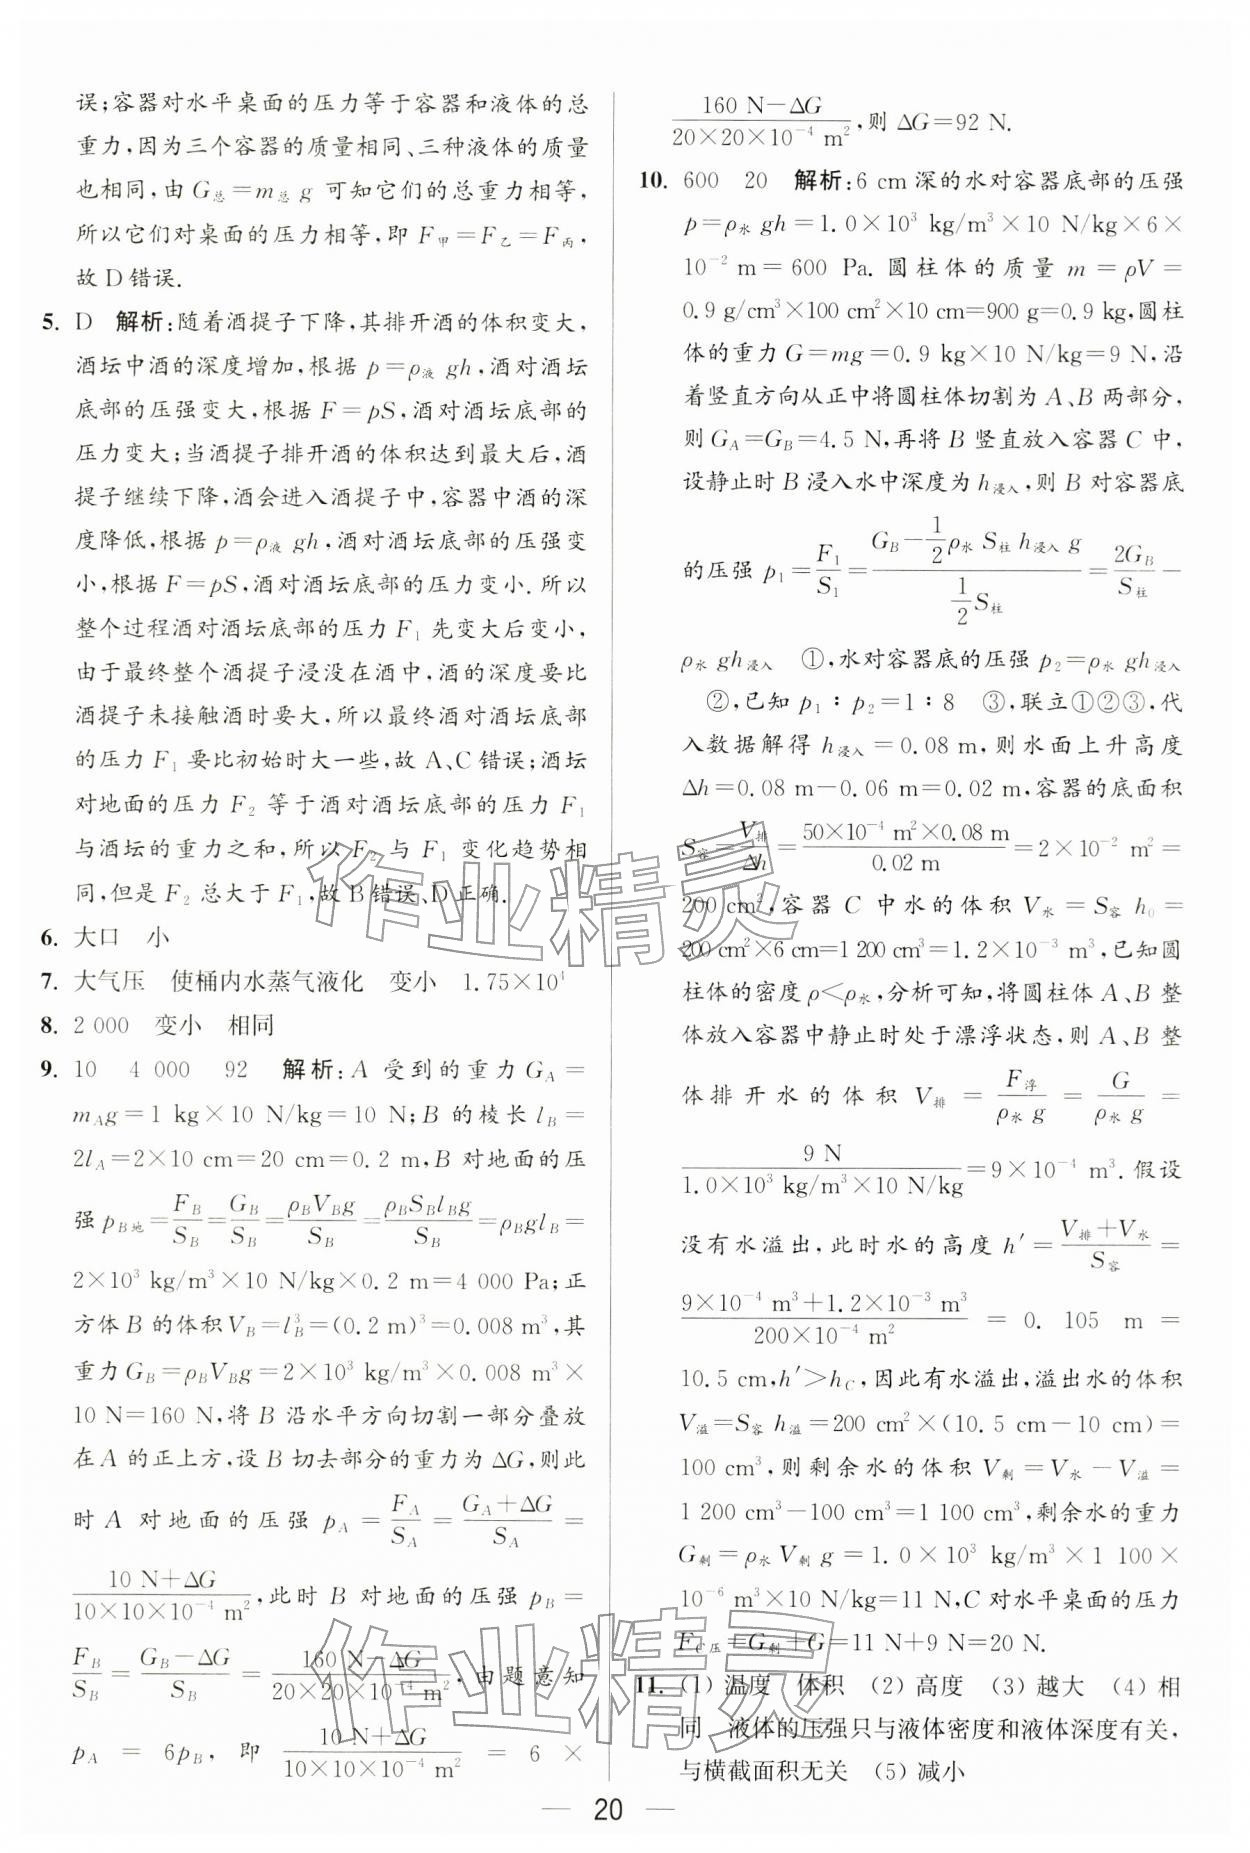 误;容器对水平桌面的压力等于容器和液体的总
重力,因为三个容器的质量相同、三种液体的质量
也相同,由 G总=m总 g 可知它们的总重力相等,
所以它们对桌面的压力相等,即 F甲=F乙=F丙,
故 D 错误.
5. D 解析:随着酒提子下降,其排开酒的体积变大,
酒坛中酒的深度增加,根据 p=ρ液 gh,酒对酒坛
底部的压强变大,根据 F=pS,酒对酒坛底部的
压力变大;当酒提子排开酒的体积达到最大后,酒
提子继续下降,酒会进入酒提子中,容器中酒的深
度降低,根据 p=ρ液 gh,酒对酒坛底部的压强变
小,根据 F=pS,酒对酒坛底部的压力变小. 所以
整个过程酒对酒坛底部的压力 F₁ 先变大后变小,
由于最终整个酒提子浸没在酒中,酒的深度要比
酒提子未接触酒时要大,所以最终酒对酒坛底部
的压力 F₁ 要比初始时大一些,故 A、C 错误;酒坛
对地面的压力 F₂ 等于酒对酒坛底部的压力 F₁
与酒坛的重力之和,所以 F₂ 与 F₁ 变化趋势相
同,但是 F₂ 总大于 F₁,故 B 错误、D 正确.
6. 大口 小
7. 大气压 使桶内水蒸气液化 变小 1.75×10⁴
8. 2 000 变小 相同
9. 10 4 000 92 解析:A 受到的重力 G_A=
m_A g=1 kg×10 N/kg=10 N;B 的棱长 l_B=
2l_A=2×10 cm=20 cm=0.2 m,B 对地面的压
强 p_B地=F_B/S_B=G_B/S_B=ρ_B V_B g/S_B=ρ_B S_B l_B g/S_B=ρ_B g l_B=
2×10³ kg/m³×10 N/kg×0.2 m=4 000 Pa;正
方体 B 的体积 V_B=l_B³=(0.2 m)³=0.008 m³,其
重力 G_B=ρ_B V_B g=2×10³ kg/m³×0.008 m³×
10 N=160 N,将 B 沿水平方向切割一部分叠放
在 A 的正上方,设 B 切去部分的重力为 ΔG,则此
时 A 对地面的压强 p_A=F_A/S_A=(G_A+ΔG)/S_A=
(10 N+ΔG)/(10×10×10⁻⁴ m²),此时 B 对地面的压强 p_B=
F_B/S_B=(G_B-ΔG)/S_B=(160 N-ΔG)/(20×20×10⁻⁴ m²),由题意知
p_A=6p_B,即 (10 N+ΔG)/(10×10×10⁻⁴ m²)=6×
(160 N-ΔG)/(20×20×10⁻⁴ m²),则 ΔG=92 N.
10. 600 20 解析:6 cm 深的水对容器底部的压强
p=ρ水 gh=1.0×10³ kg/m³×10 N/kg×6×
10⁻² m=600 Pa. 圆柱体的质量 m=ρV=
0.9 g/cm³×100 cm²×10 cm=900 g=0.9 kg,圆柱
体的重力 G=mg=0.9 kg×10 N/kg=9 N,沿
着竖直方向从正中将圆柱体切割为 A、B 两部分,
则 G_A=G_B=4.5 N,再将 B 竖直放入容器 C 中,
设静止时 B 浸入水中深度为 h浸入,则 B 对容器底
的压强 p₁=F₁/S₁=(G_B-1/2 ρ水 S柱 h浸入 g)/(1/2 S柱)=2G_B/S柱-
ρ水 gh浸入 ①,水对容器底的压强 p₂=ρ水 gh浸入
②,已知 p₁∶p₂=1∶8 ③,联立①②③,代
入数据解得 h浸入=0.08 m,则水面上升高度
Δh=0.08 m-0.06 m=0.02 m,容器的底面积
S容=V排/Δh=(50×10⁻⁴ m²×0.08 m)/(0.02 m)=2×10⁻² m²=
200 cm²,容器 C 中水的体积 V水=S容 h₀=
200 cm²×6 cm=1 200 cm³=1.2×10⁻³ m³,已知圆
柱体的密度 ρ<ρ水,分析可知,将圆柱体 A、B 整
体放入容器中静止时处于漂浮状态,则 A、B 整
体排开水的体积 V排=F浮/(ρ水 g)=G/(ρ水 g)=
9 N/(1.0×10³ kg/m³×10 N/kg)=9×10⁻⁴ m³. 假设
没有水溢出,此时水的高度 h′=(V排+V水)/S容=
(9×10⁻⁴ m³+1.2×10⁻³ m³)/(200×10⁻⁴ m²)=0.105 m=
10.5 cm,h′>h_C,因此有水溢出,溢出水的体积
V溢=S容 h溢=200 cm²×(10.5 cm-10 cm)=
100 cm³,则剩余水的体积 V剩=V水-V溢=
1 200 cm³-100 cm³=1 100 cm³,剩余水的重力
G剩=ρ水 V剩 g=1.0×10³ kg/m³×1 100×
10⁻⁶ m³×10 N/kg=11 N,C 对水平桌面的压力
F_C压=G剩+G=11 N+9 N=20 N.
11. (1) 温度 体积 (2) 高度 (3) 越大 (4) 相
同 液体的压强只与液体密度和液体深度有关,
与横截面积无关 (5) 减小
— 20 —
作业精灵
作业精灵